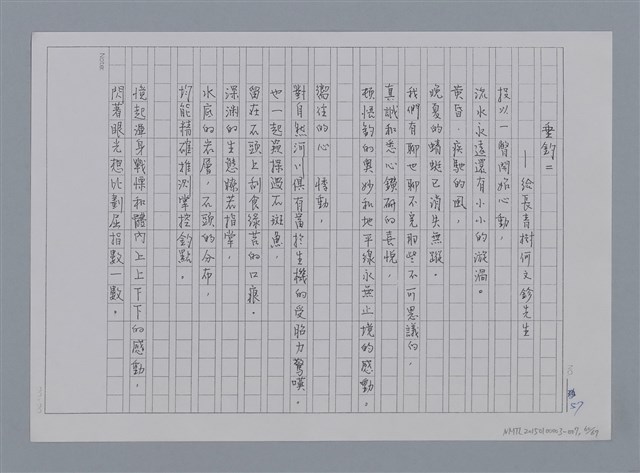 垂釣二
——給長青樹何文鈴先生
投以一瞥開始心動，
流水永遠還有小小的漩渦。
黃昏．疾馳的風，
晚夏的蜻蜓已消失無蹤。
我們有聊也聊不完那些不可思議的，
真誠和悉心鑽研的喜悅，
頓悟釣的奧妙和地平線永無止境的感動。
悸動，
對自然河川俱有富於生機的受胎力驚嘆。
也一起窺探過石斑魚，
留在石頭上刮食綠苔的口痕。
深淵的生態瞭若指掌，
水底的岩層，石頭的分布，
均能精確推測掌控釣點。
憶起渾身戰慄和體內上上下下的感動，
閃著眼光想比劃屈指數一數。
57